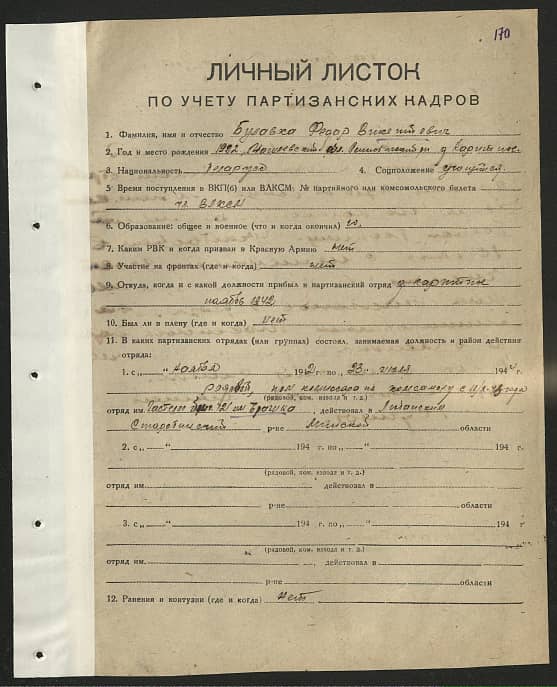 170
ЛИЧНЫЙ ЛИСТОК
ПО УЧЕТУ ПАРТИЗАНСКИХ КАДРОВ
1. Фамилия, имя и отчество Булавка Федор Викентьевич
2. Год и место рождения 1922, обл. д.
3. Национальность 4. Соцположение учащийся
5 Время поступления в ВКП(б) или ВЛКСМ: № партийного или комсомольского билета
чл. ВЛКСМ
6. Образование: общее и военное (что и когда окончил)
7. Каким РВК и когда призван в Красную Армию нет
8. Участие на фронтах (где и когда) нет
9. Откуда, когда и с какой должности прибыл в партизанский отряд д.
ноябрь 1942
10. Был ли в плену (где и когда) нет
11. В каких партизанских отрядах (или группах) состоял, занимаемая должность и район действия
отряда:
1. с „ “ ноября 1942 г. по „23“ июля 1944 г.
рядовой, пом. комиссара по комсомолу с
(рядовой, ком. взвода и т. д.)
отряд им. действовал в
Старобинский р-не Минской области
2. с „ “ 194 г. по „ “ 194 г.
(рядовой, ком. взвода и т. д.)
отряд им. действовал в
р-не области
3. с „ “ 194 г. по „ “ 194 г
(рядовой, ком. взвода и т. д.)
отряд им. действовал в
р-не области
12. Ранения и контузии (где и когда) нет